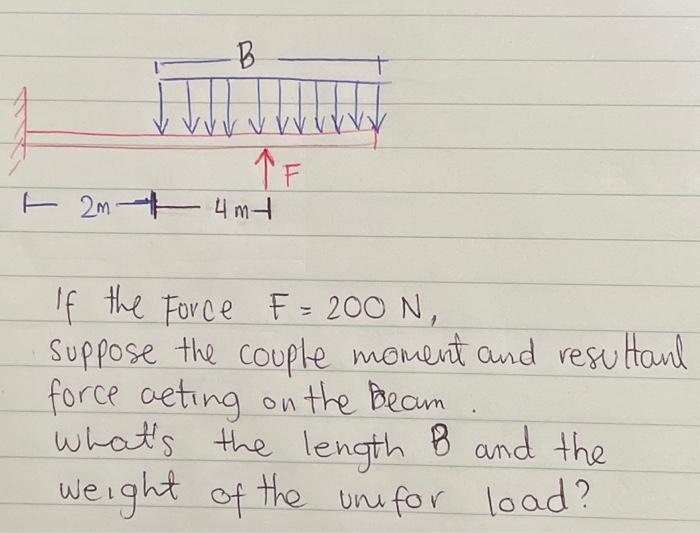 B
F
2m
4m
If the Force F = 200 N,
suppose the couple moment and resultant
force acting on the beam.
what's the length B and the
weight of the unifor load?